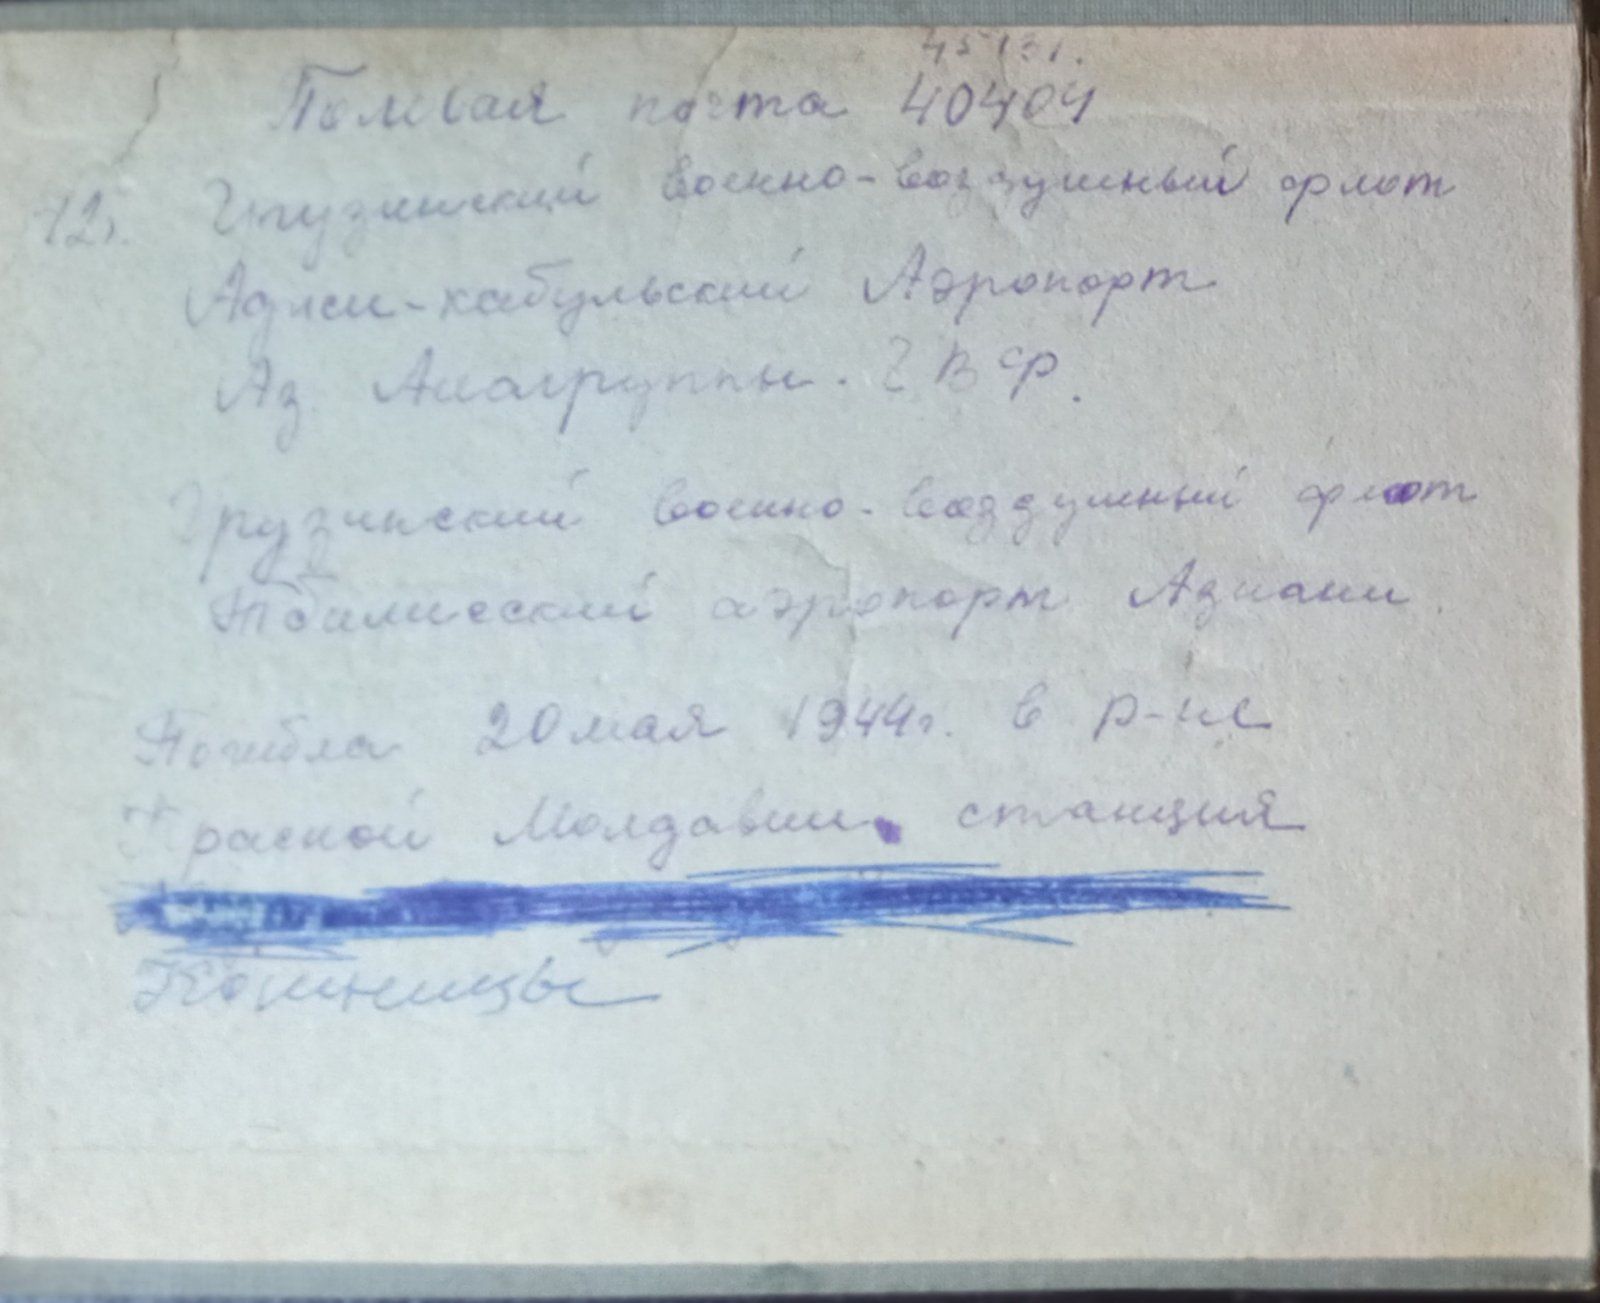 Полевая почта 40404
42г. Грузинский военно-воздушный флот
Аджи-кабульский Аэропорт
Аз Авиагруппы. ГВФ.
Грузинский военно-воздушный флот
Тбилисский аэропорт Авиани.
Погибла 20 мая 1944г. в р-не
Красной Молдавии станция
Кошницы